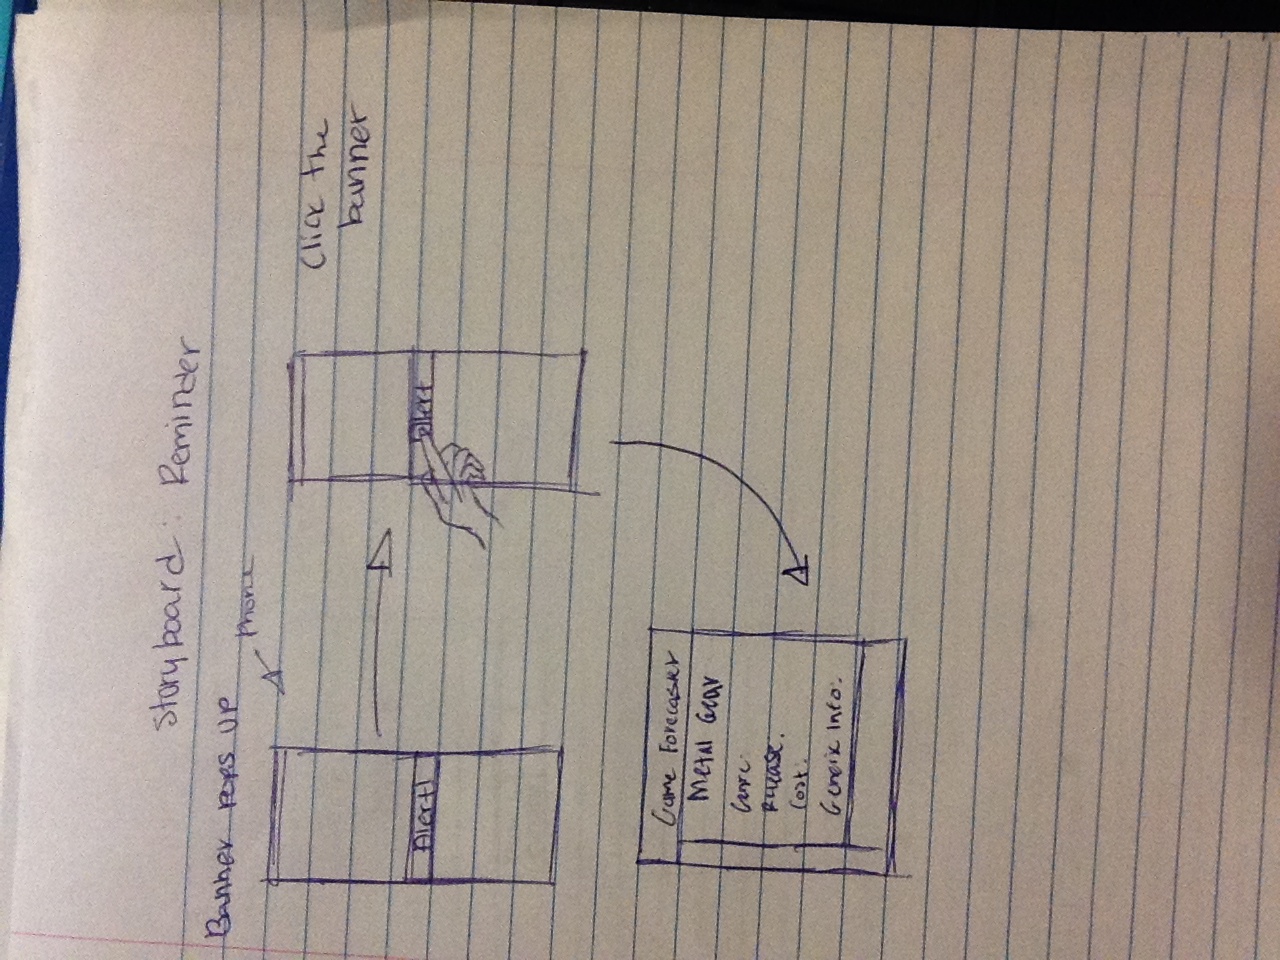 Storyboard: Reminder
Banner pops up
Phone
Alert!
Click the
banner
Alert
Game Forecaster
Metal Gear
Release.
Cost.
Generic info.